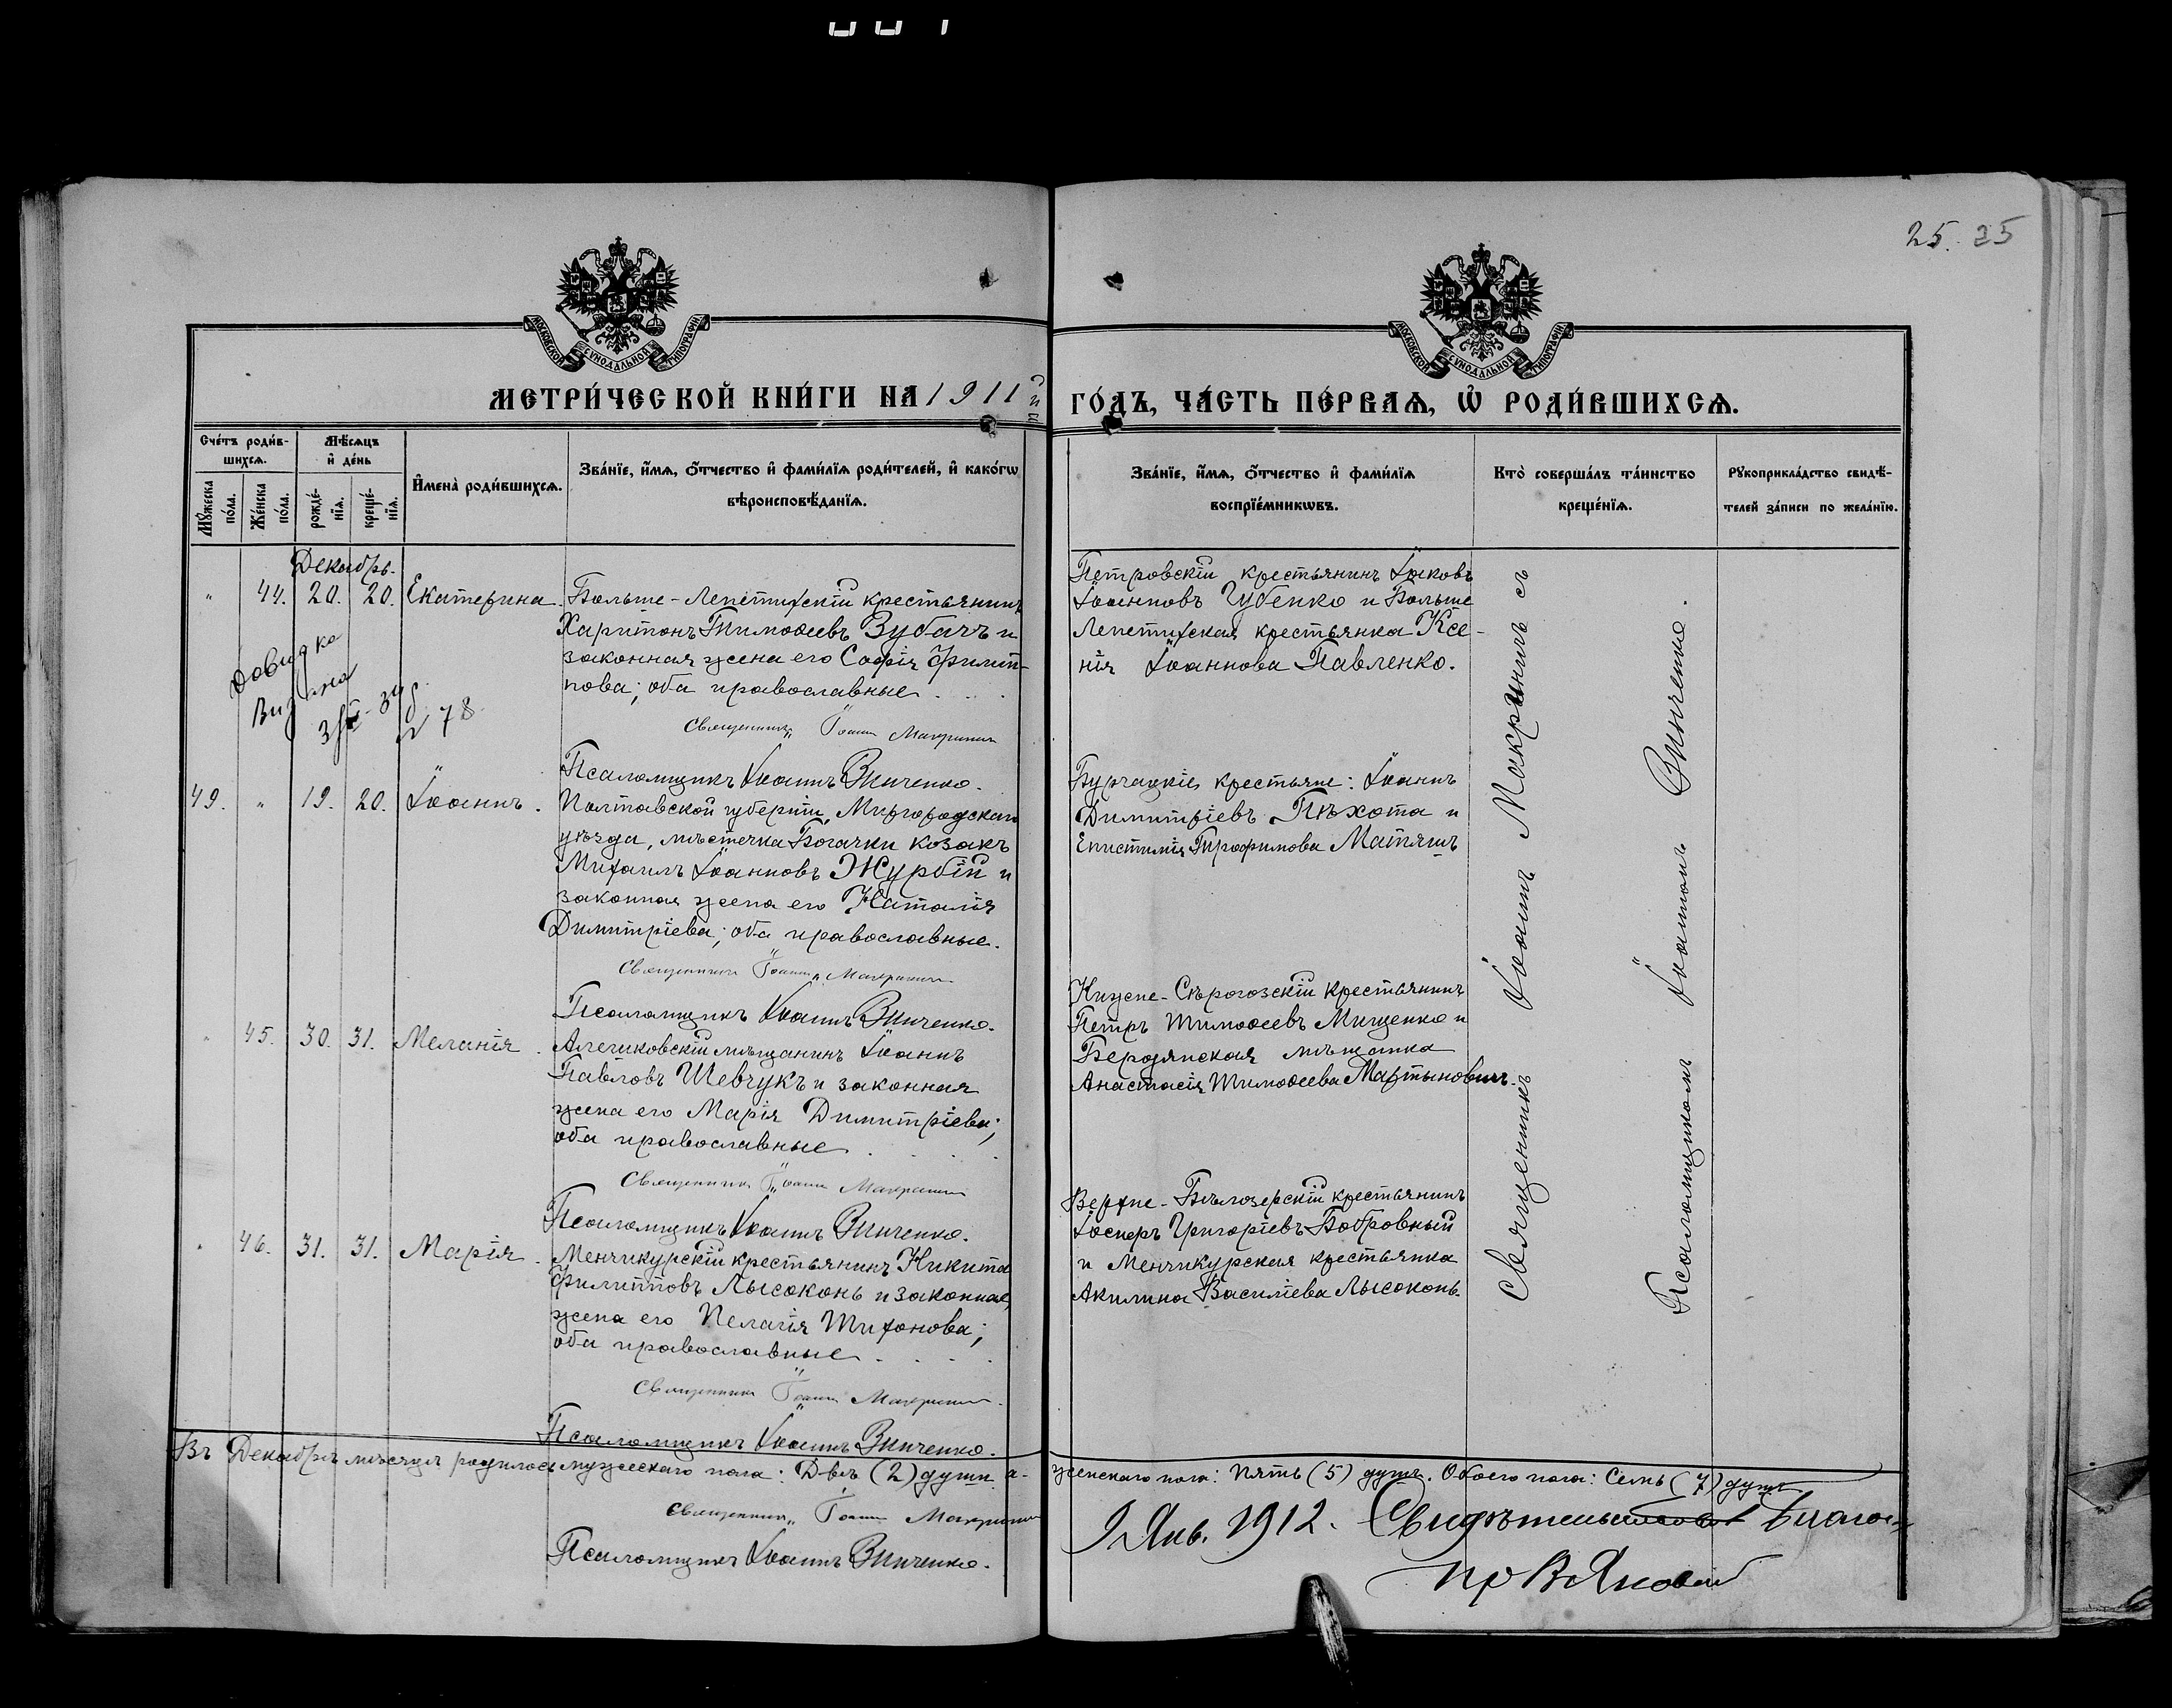 25. 25
МОСКОВСКОЙ СѴНОДАЛЬНОЙ ТИПОГРАФІИ
МОСКОВСКОЙ СѴНОДАЛЬНОЙ ТИПОГРАФІИ
МЕТРИ́ЧЕСКОЙ КНИ́ГИ НА 1911й
ГО́ДЪ, ЧА́СТЬ ПЕ́РВАѦ, Ѡ РОДИ́ВШИХСѦ.
Сче́тъ роди́в-
шихсѧ.
Мꙋ́жеска по́ла.
Же́нска по́ла.
Мѣ́сѧцъ
и де́нь
рожде́-
нїѧ.
креще́-
нїѧ.
И҆мена̀ роди́вшихсѧ.
Зва́нїе, и҆́мѧ, ѻ҆́тчество и҆ фами́лїѧ роди́телей, и҆ како́гѡ
вѣроисповѣ́данїѧ.
Зва́нїе, и҆́мѧ, ѻ҆́тчество и҆ фами́лїѧ
воспрїе́мникѡвъ.
Кто̀ соверша́лъ та́инство
креще́нїѧ.
Рꙋкоприкла́дство свидѣ́-
телей за́писи по жела́нїю.
Декабрь.
" 44. 20. 20. Екатерина. Больше-Лепетихскій крестьянинъ
Харитонъ Тимоѳеевъ Зубачъ и
законная жена его Софія Филип-
пова; оба православные
Священникъ Іоаннъ Макринин
Псаломщикъ Іоаннъ Винченко.
Петровскій крестьянинъ Іаковъ
Іоанновъ Губенко и Больше
Лепетихская крестьянка Ксе-
нія Іоаннова Павленко.
Довидка
Видана
78
49. " 19. 20. Іоаннъ. Полтавской губерніи, Миргородскаго
уѣзда, мѣстечка Богачки козакъ
Михаилъ Іоанновъ Журбій и
законная жена его Наталія
Димитріева; оба православные.
Священникъ Іоаннъ Макринин
Псаломщикъ Іоаннъ Винченко.
Бурчацкіе крестьяне: Іоаннъ
Димитріевъ Пѣхота и
Епистимія Трофимова Матяшъ
" 45. 30. 31. Меланія. Алешковскій мѣщанинъ Іоаннъ
Павловъ Шевчукъ и законная
жена его Марія Димитріева;
оба православные
Священникъ Іоаннъ Макринин
Псаломщикъ Іоаннъ Винченко.
Нижне-Сѣрогозскій крестьянинъ
Петръ Тимоѳеевъ Мищенко и
Бердянская мѣщанка
Анастасія Тимоѳеева Мартыновичъ.
" 46. 31. 31. Марія. Менчикурскій крестьянинъ Никита
Филипповъ Лысоконь и законная
жена его Пелагія Тихонова;
оба православные
Священникъ Іоаннъ Макринин
Псаломщикъ Іоаннъ Винченко.
Верхне-Бѣлозерскій крестьянинъ
Іосифъ Григоріевъ Бобровный
и Менчикурская крестьянка
Акилина Василіева Лысоконь.
Священникъ Іоаннъ Макрининъ съ
Псаломщикомъ Іоанномъ Винченко.
Въ Декабрѣ мѣсяцѣ родилось мужескаго пола: Двѣ (2) души а-
женскаго пола: Пять (5) душъ. Обоего пола: Семь (7) душъ
Священникъ Іоаннъ Макринин
Псаломщикъ Іоаннъ Винченко.
Янв. 1912.